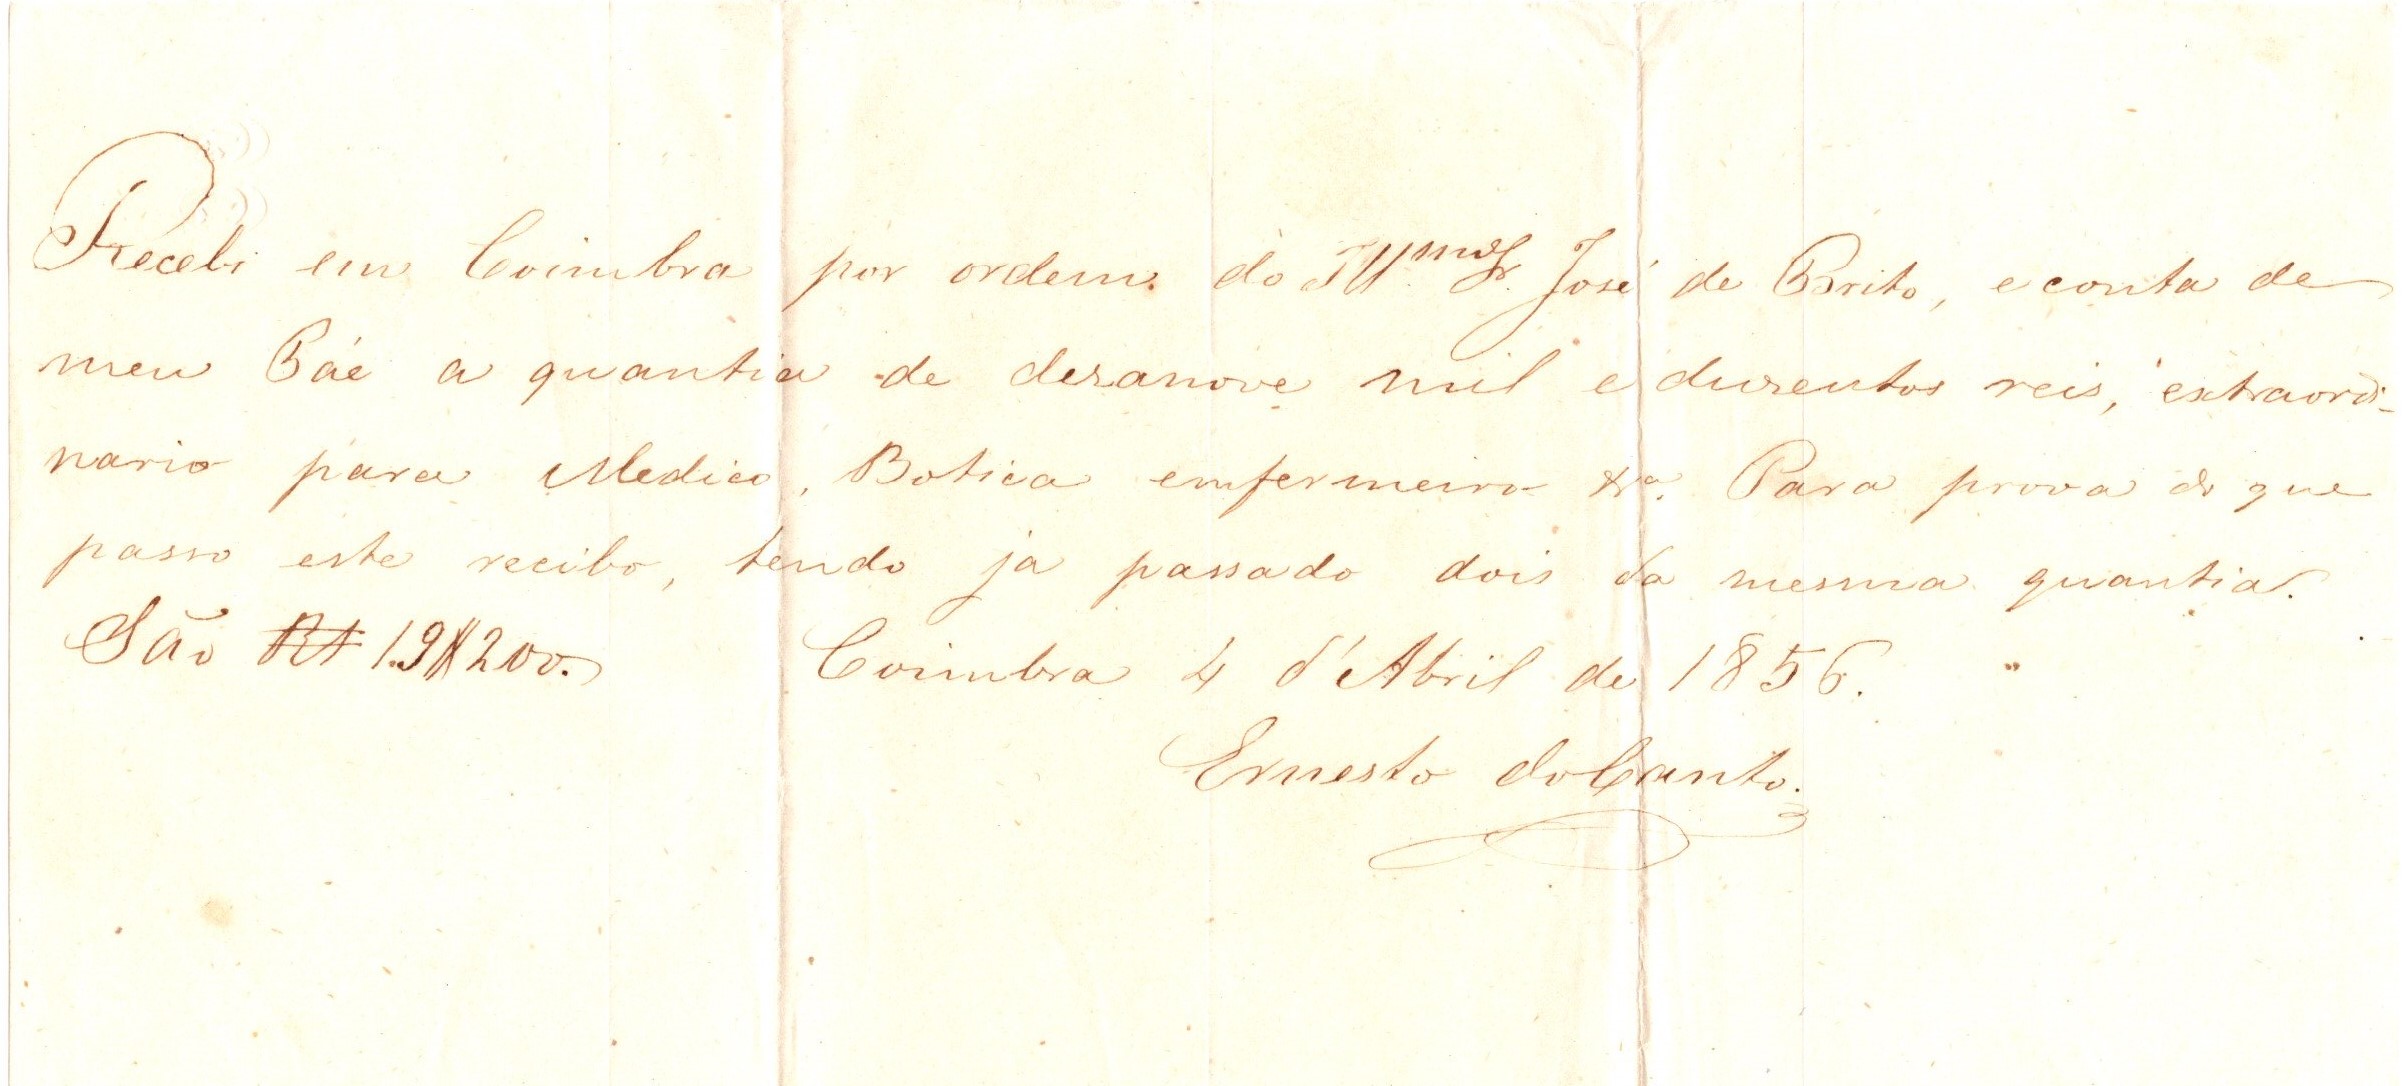 Recebi em Coimbra por ordem do Ill.mo Sr. José de Brito, e conta de
meu Páe a quantia de dezanove mil e duzentos reis, extraordi-
nario para Medico, Botica enfermeiro &a. Para prova do que
passo este recibo, tendo ja passado dois da mesma quantia.
São RS 19$200. Coimbra 4 d'Abril de 1856.
Ernesto do Canto.